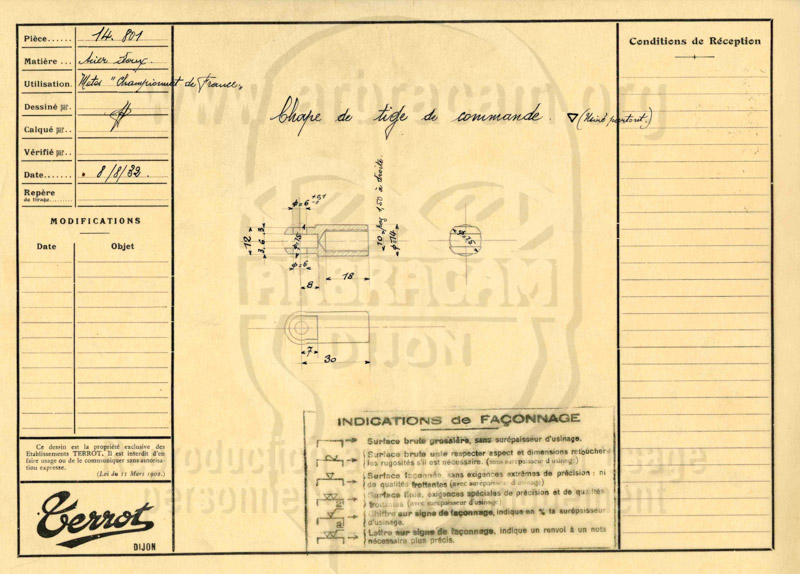 Pièce.......... 14.801
Matière... Acier doux.
Utilisation. Motos "Championnat de France"
Dessiné par.
Calqué par..
Vérifié par...
Date....... 8/8/32.
Repère
de tirage........
MODIFICATIONS
Date Objet
Ce dessin est la propriété exclusive des
Etablissements TERROT. Il est interdit d'en
faire usage ou de le communiquer sans autorisa-
tion expresse.
(Loi du 11 Mars 1902.)
Terrot
DIJON
Chape de tige de commande. (Usiné partout.)
Conditions de Réception
www.arbracam.org
ARBRACAM
DIJON
ϕ=6
12
3.6.3
ϕ=6
8
18
10 pas 1,50 à droite.
ϕ=15
7
30
INDICATIONS de FAÇONNAGE
Surface brute grossière, sans surépaisseur d'usinage.
Surface brute unie respecter aspect et dimensions retoucher
les rugosités s'il est nécessaire. (sans surépaisseur d'usinage)
Surface façonnée sans exigences extrêmes de précision : ni
de qualités frottantes (avec surépaisseur d'usinage)
Surface finie, exigences spéciales de précision et de qualités
frottantes (avec surépaisseur d'usinage)
Chiffre sur signe de façonnage, indique en % la surépaisseur
d'usinage.
Lettre sur signe de façonnage, indique un renvoi à un nota
nécessaire plus précis.